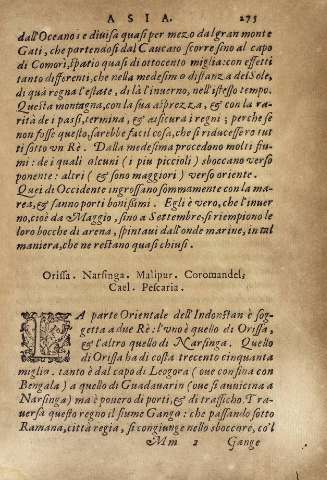 ASIA. 275
dall'Oceano: e diuisa quasi per mezo dal gran monte
Gati, che partendosi dal Caucaso scorre sino al capo
di Comori, spatio quasi di ottocento miglia: con effetti
tanto differenti, che nella medesima distanza del Sole,
di quà regna l'estate, di là l'inuerno, nell'istesso tempo.
Questa montagna, con la sua asprezza, & con la ra-
rità de i passi, termina, & assicura i regni; perche se
non fosse questo, sarebbe facil cosa, che si riducessero tut
ti sotto vn Rè. Dalla medesima procedono molti fiu-
mi: de i quali alcuni (i piu piccioli) sboccano verso
ponente: altri (& sono maggiori) verso oriente.
Quei di Occidente ingrossano sommamente con la ma-
rea, & fanno porti bonissimi. Egli è vero, che l'inuer
no, cioè da Maggio, sino a Settembre, si riempiono le
loro bocche di arena, spintaui dall'onde marine, in tal
maniera, che ne restano quasi chiusi.
Orissa. Narsinga. Malipur. Coromandel,
Cael. Pescaria.
LA parte Orientale dell'Indostan è sog-
getta a due Rè: l'vno è quello di Orissa,
& l'altro quello di Narsinga. Quello
di Orissa ha di costa trecento cinquanta
miglio. tanto è dal capo di Leogora (oue confina con
Bengala) a quello di Guadauarin (oue si auuicina a
Narsinga) ma è pouero di porti, & di traffichо. Tra-
uersa questo regno il fiume Gange: che passando sotto
Ramana, città regia, si congiunge nello sboccare, co'l
Mm 2 Gange